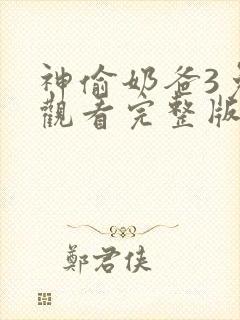 神偷奶爸3
觀看完整版
鄭君俠